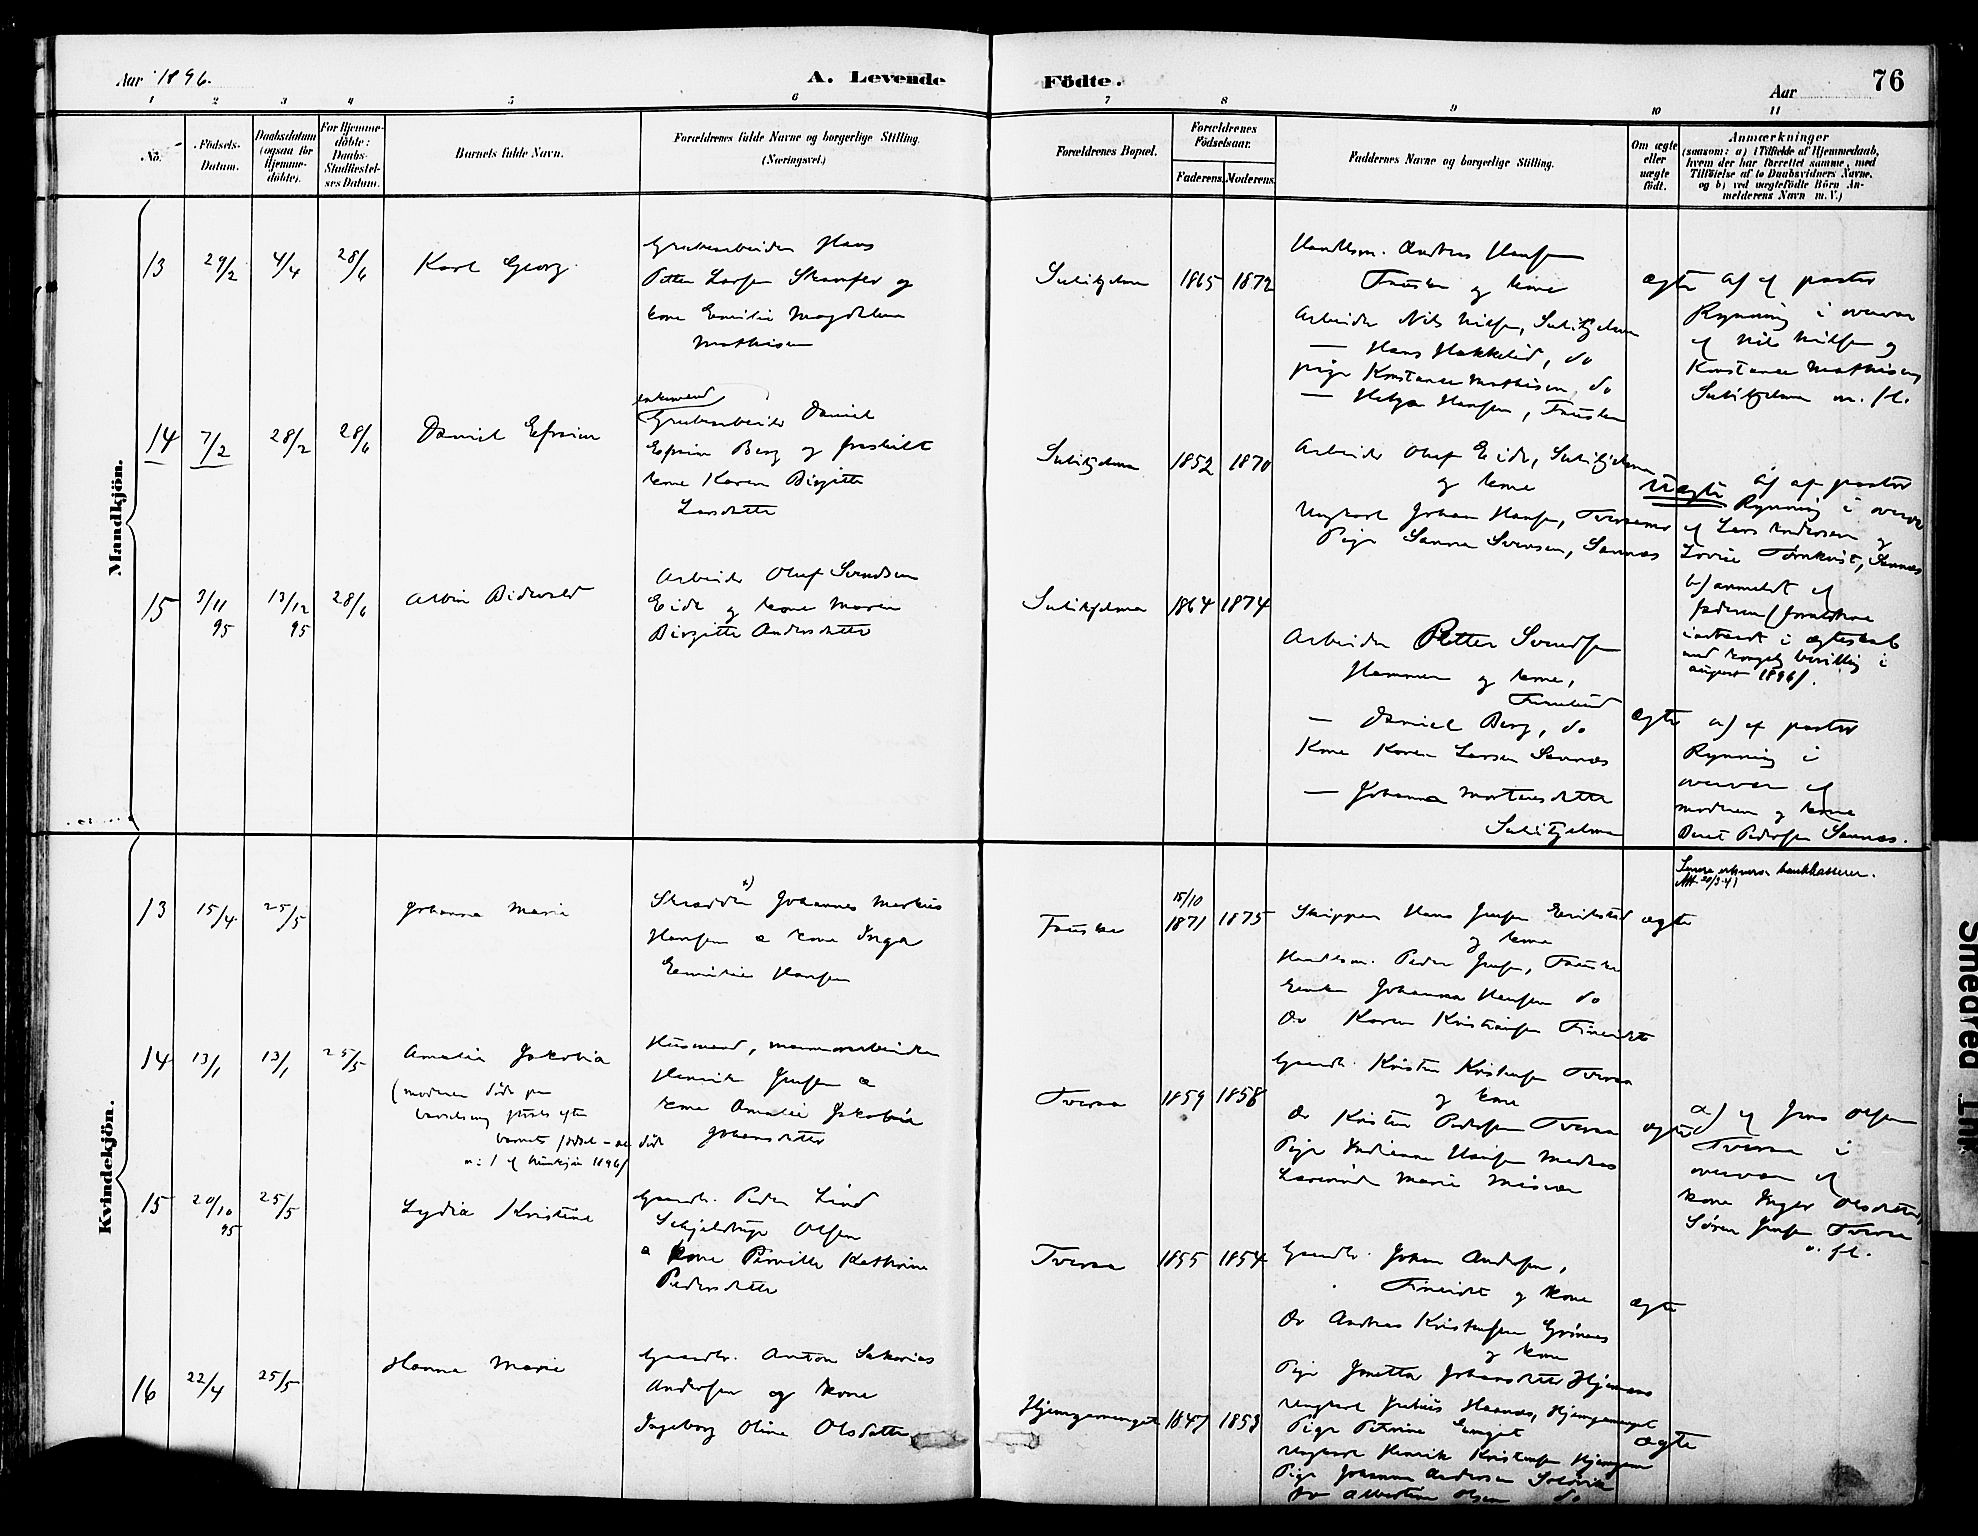 Aar 1896.
A. Levende
Födte.
Aar
76
1 2 3 4 5 6 7 8 9 10 11
No.
Födsels-
Datum.
Daabsdatum
(ogsaa for
Hjemme-
döbte).
For Hjemme-
döbte:
Daabs-
Stadfæstel-
ses Datum.
Barnets fulde Navn.
Forældrenes fulde Navne og borgerlige Stilling.
(Næringsvei.)
Forældrenes Bopæl.
Forældrenes
Födselsaar.
Faderens. Moderens.
Faddernes Navne og borgerlige Stilling.
Om ægte
eller
uægte
födt.
Anmærkninger
(saasom: a) i Tilfælde af Hjemmedaab,
hvem der har forrettet samme, med
Tilföielse af to Daabsvidners Navne.
og b) ved uægtefödte Börn An-
melderens Navn m. V.)
Mandkjön.
13 29/2 4/4 28/6 Karl Georg
Grubearbeider Hans
Petter Larsen Skamfer og
kone Emilie Magdalena
Mathisen
Sulitjelma 1865 1872
Handlsm. Andreas Hansen
Fauske og kone
Arbeider Nils Nilsen, Sulitjelma
— Hans Hakkelid, do
pige Konstanse Mathisen, do
— Helga Hansen, Fauske
ægte
a) af pastor
Rynning i overvær
af Nils Nilsen og
Konstanse Mathisen
Sulitjelma m. fl.
14 7/2 28/2 28/6 Daniel Efraim
enkemand
Grubearbeider Daniel
Efraim Berg og fraskilt
kone Karen Birgitte
Larsdatter
Sulitjelma 1852 1870
Arbeider Oluf Eide, Sulitjelma
og kone
Ungkarl Johan Hansen,
Pige Sanna Svensen, Sannæs
Uægte
a) af pastor
Rynning i overvær
af Lars Andersen og
Lovise Tørnkvist, Sannæs
b) anmeldt af
faderen (forældrene
indtraadt i ægteskab
med kongelig bevilling i
august 1896).
15 3/11 95 13/12 95 28/6
Arbeider Oluf Svendsen
Eide og kone Maren
Birgitte Andersdatter
Sulitjelma 1864 1874
Arbeider Petter Svendsen
Hammer og kone,
Finneid
— Daniel Berg, do
Kone Karen Larsen Sannæs
— Johanna Mortensdatter
Sulitjelma
ægte
a) af pastor
Rynning i
overvær af
moderen og kone
Beret Pedersen Sannæs.
Kvindekjön.
13 15/4 25/5 Johanna Marie
Skrædder x) Johannes Markus
Hansen & kone Inga
Emilie Hansen
Fauske 15/10 1871 1875
Skipper Hans Jensen Erikstad
og kone
Handlsm. Peder Jensen, Fauske
Enke Johanna Hansen do
Do Karen Kristiansen Finneidet
ægte
14 13/1 13/1 25/5 Amalie Jakobia
(moderen døde paa
barselseng straks efter
barnets fødsel — død
n: 1 af kvindekjøn 1896)
Husmand, minearbeider
Henrik Jensen &
kone Amalie Jakobia
Johansdatter
Tveraa 1859 1858
Gaardbr. Kristen Kristensen Tveraa
og kone
Do Kristen Pedersen Tveraa
Pige Indianna Hansen
Marie
ægte
a) af Jens Olsen
Tveraa i
overvær af
kone Inger Olsdatter,
Søren Jensen Tveraa
o. fl.
15 20/10 95 25/5 Lydia Kristine
Gaardbr. Peder Lind
Schjeldrup Olsen
& kone Pernille Kathrine
Pedersdatter
Tveraa 1855 1854
Gaardbr. Johan Andersen,
Finneidet og kone
Do Andreas Kristensen Grønnæs
og kone
Pige Johansdatter
ægte
16 22/4 25/5 Hanna Marie
Gaardbr. Anton Sakarias
Andersen og kone
Ingeborg Oline Olsdatter
Hjemgamenget 1847 1853
Ungkarl Hjemgamenget
Pige Petrine Enget
Ungkarl Henrik Kristensen
Pige Johanna Andersen
do Albertine Olsen do
ægte
Smedfed ink